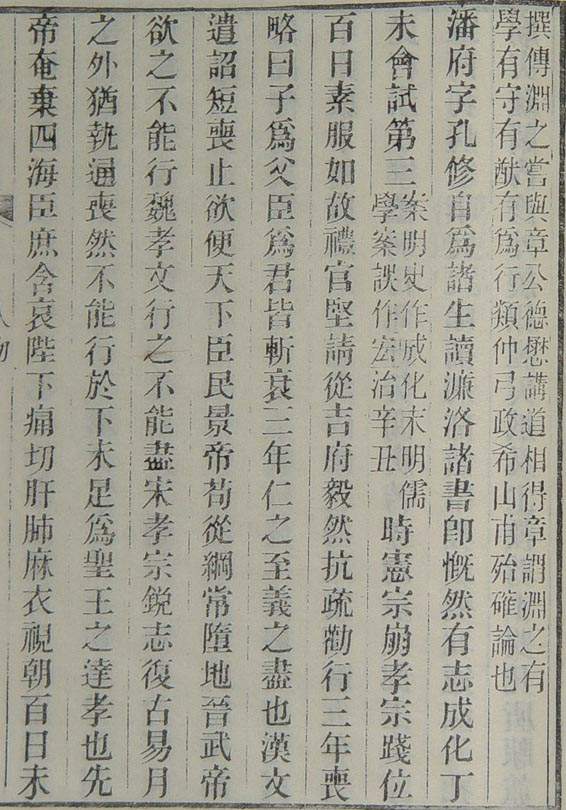 撰傳淵之嘗與章公德懋講道相得章謂淵之有
學有守有猷有爲行類仲弓政希山甫殆確論也
潘府字孔修自爲諸生讀濂洛諸書卽慨然有志成化丁
未會試第三
案明史作成化末明儒
學案誤作宏治辛丑
時憲宗崩孝宗踐位
百日素服如故禮官堅請從吉府毅然抗疏勸行三年喪
略曰子爲父臣爲君皆斬衰三年仁之至義之盡也漢文
遺詔短喪止欲便天下臣民景帝苟從綱常墮地晉武帝
欲之不能行魏孝文行之不能盡宋孝宗銳志復古易月
之外猶執通喪然不能行於下未足爲聖王之達孝也先
帝奄棄四海臣庶含哀陛下痛切肝肺麻衣視朝百日未